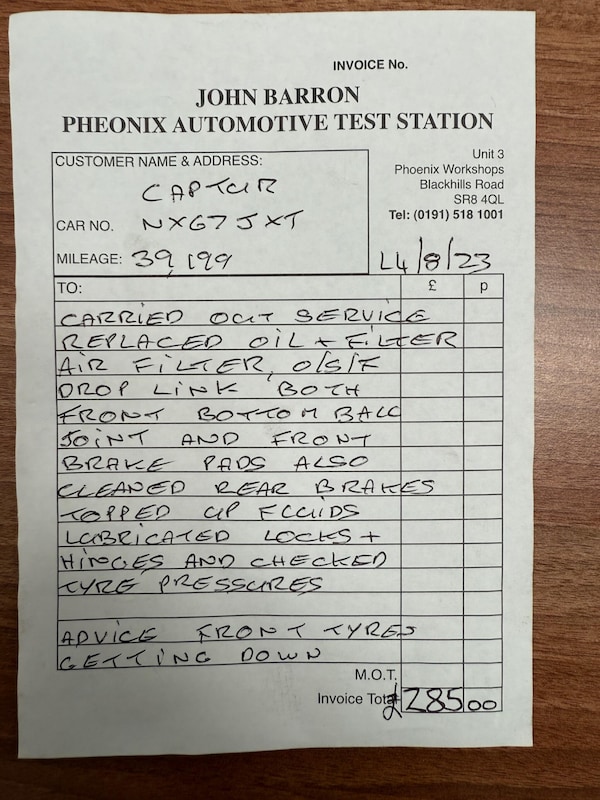 INVOICE No.
JOHN BARRON
PHEONIX AUTOMOTIVE TEST STATION
Unit 3
Phoenix Workshops
Blackhills Road
SR8 4QL
Tel: (0191) 518 1001
CUSTOMER NAME & ADDRESS:
CAPTUR
CAR NO. NX67JXT
MILEAGE: 39,199
14/8/23
TO: £ p
CARRIED OUT SERVICE
REPLACED OIL + FILTER
AIR FILTER, O/S/F
DROP LINK BOTH
FRONT BOTTOM BALL
JOINT AND FRONT
BRAKE PADS ALSO
CLEANED REAR BRAKES
TOPPED UP FLUIDS
LUBRICATED LOCKS +
HINGES AND CHECKED
TYRE PRESSURES
ADVICE FRONT TYRES
GETTING DOWN
M.O.T.
Invoice Total £285 00